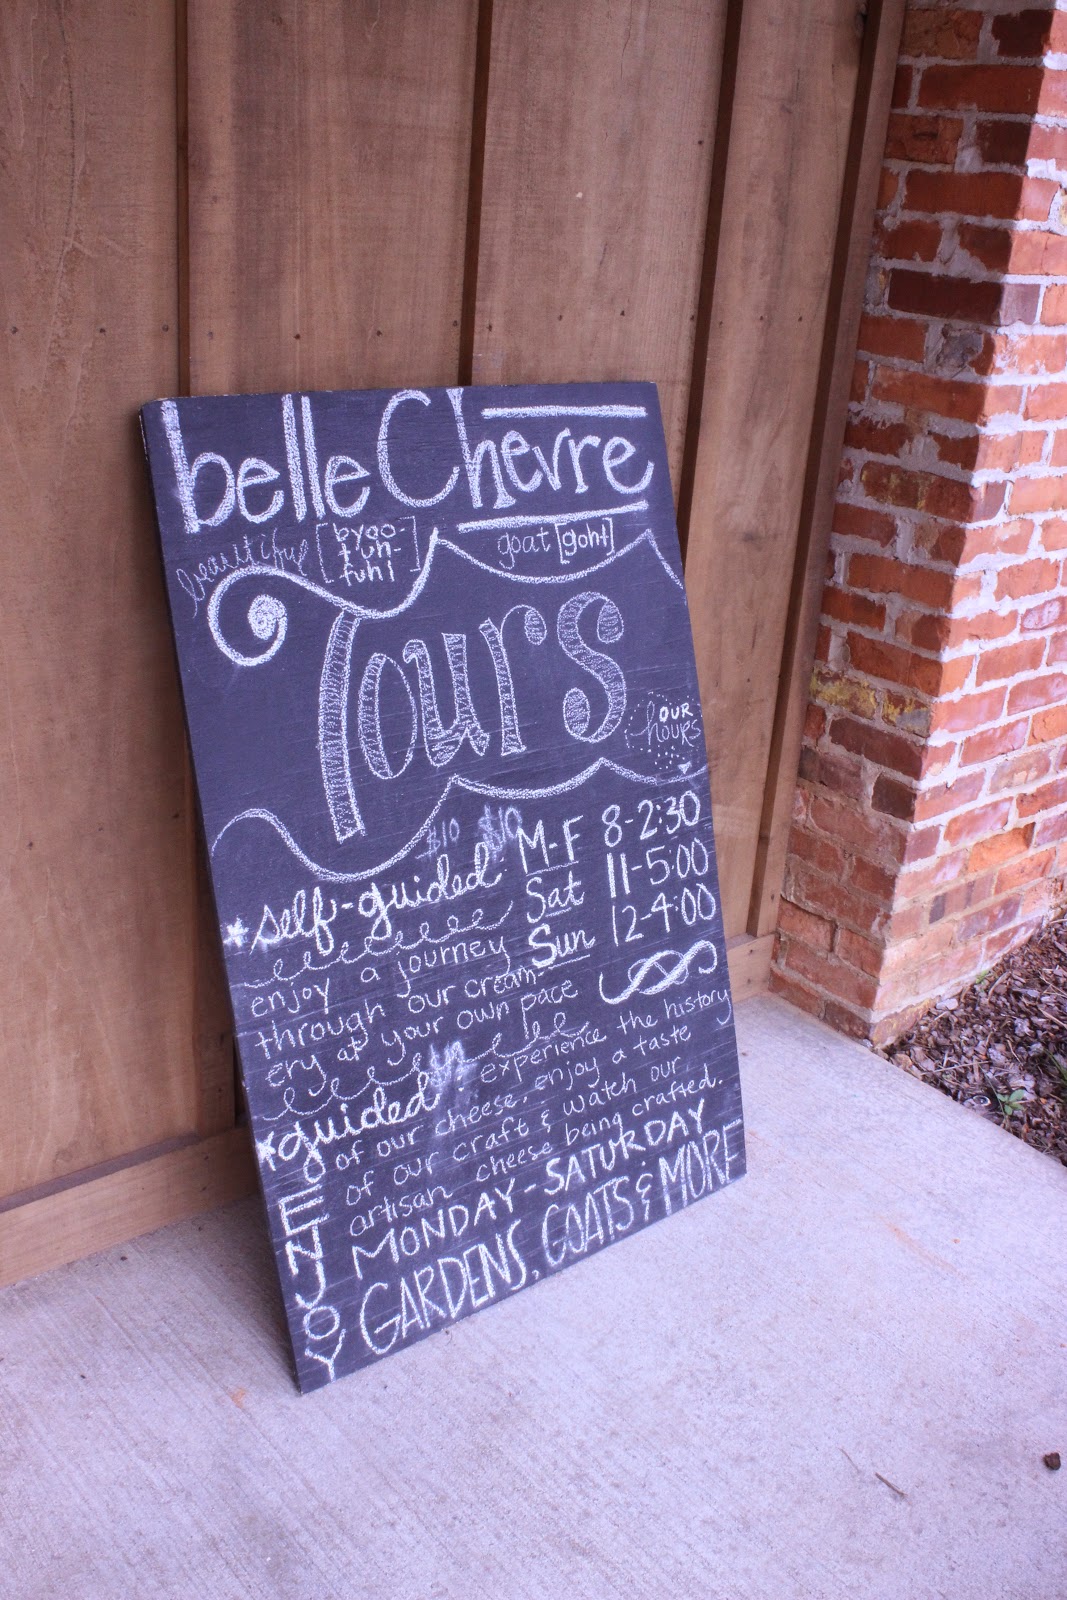 belle Chevre
beautiful [byoo-
t un-
fuhl]
goat [goht]
Tours
OUR
hours
$10 $10
*self-guided M-F 8-2:30
Sat 11-5:00
Sun 12-4:00
enjoy a journey
through our cream-
ery at your own pace
*guided: experience the history
of our cheese, enjoy a taste
of our craft & watch our
artisan cheese being crafted.
MONDAY - SATURDAY
ENJOY
GARDENS, GOATS & MORE